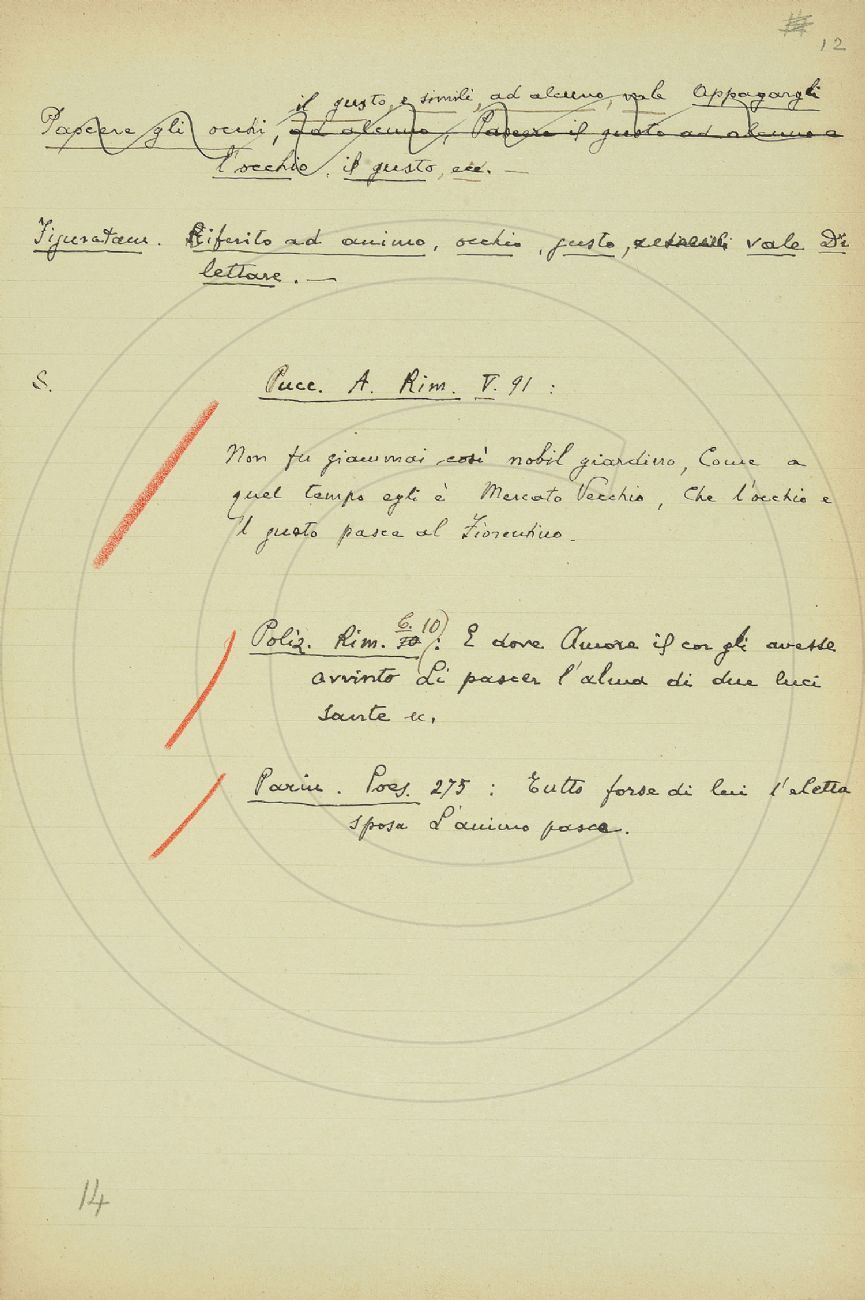 12
il gusto, e simili, ad alcuno, vale Appagargli
Pascere gli occhi, ad alcuno, Pascere il gusto ad alcuno e
l'occhio, il gusto, ecc. —
Figuratam. Riferito ad animo, occhio, gusto, e simili vale Di-
lettare. —
S. Pucc. A. Rim. V. 91 :
Non fu giammai così nobil giardino, Come a
quel tempo egli è Mercato Vecchio, Che l'occhio e
'l gusto pasce al Fiorentino.
C. 10)
Poliz. Rim. : E dove Amore il cor gli avesse
avvinto Di pascer l'alma di due luci
sante ec.
Parin. Poes. 275 : Tutto forse di lui l'eletta
sposa L'animo pasce.
14